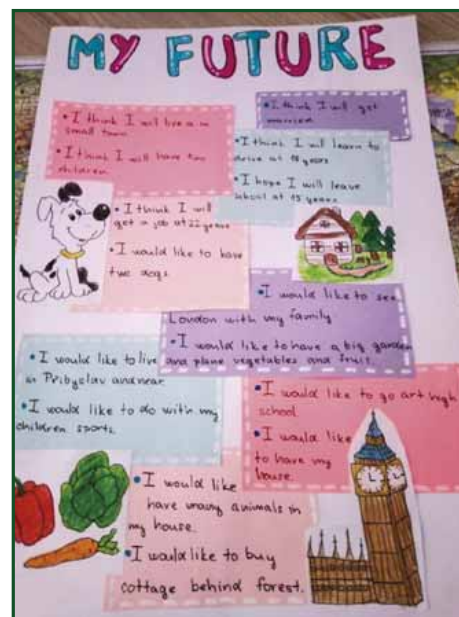 MY FUTURE
• I think I will live in
small town.
• I think I will have two
children.
• I think I will get
married.
• I think I will learn to
drive at 18 years
• I hope I will leave
school at 15 years.
• I think I will
get a job at 22 years
• I would like to have
two dogs.
• I would like to see
London with my family
• I would like to have a big garden
and plane vegetables and fruit.
• I would like to live
in Pribyslav and near.
• I would like to do with my
children sports.
• I would like to go art high
school
• I would like
to have my
house.
• I would like
have many animals in
my house.
• I would like to buy
cottage behind forest.